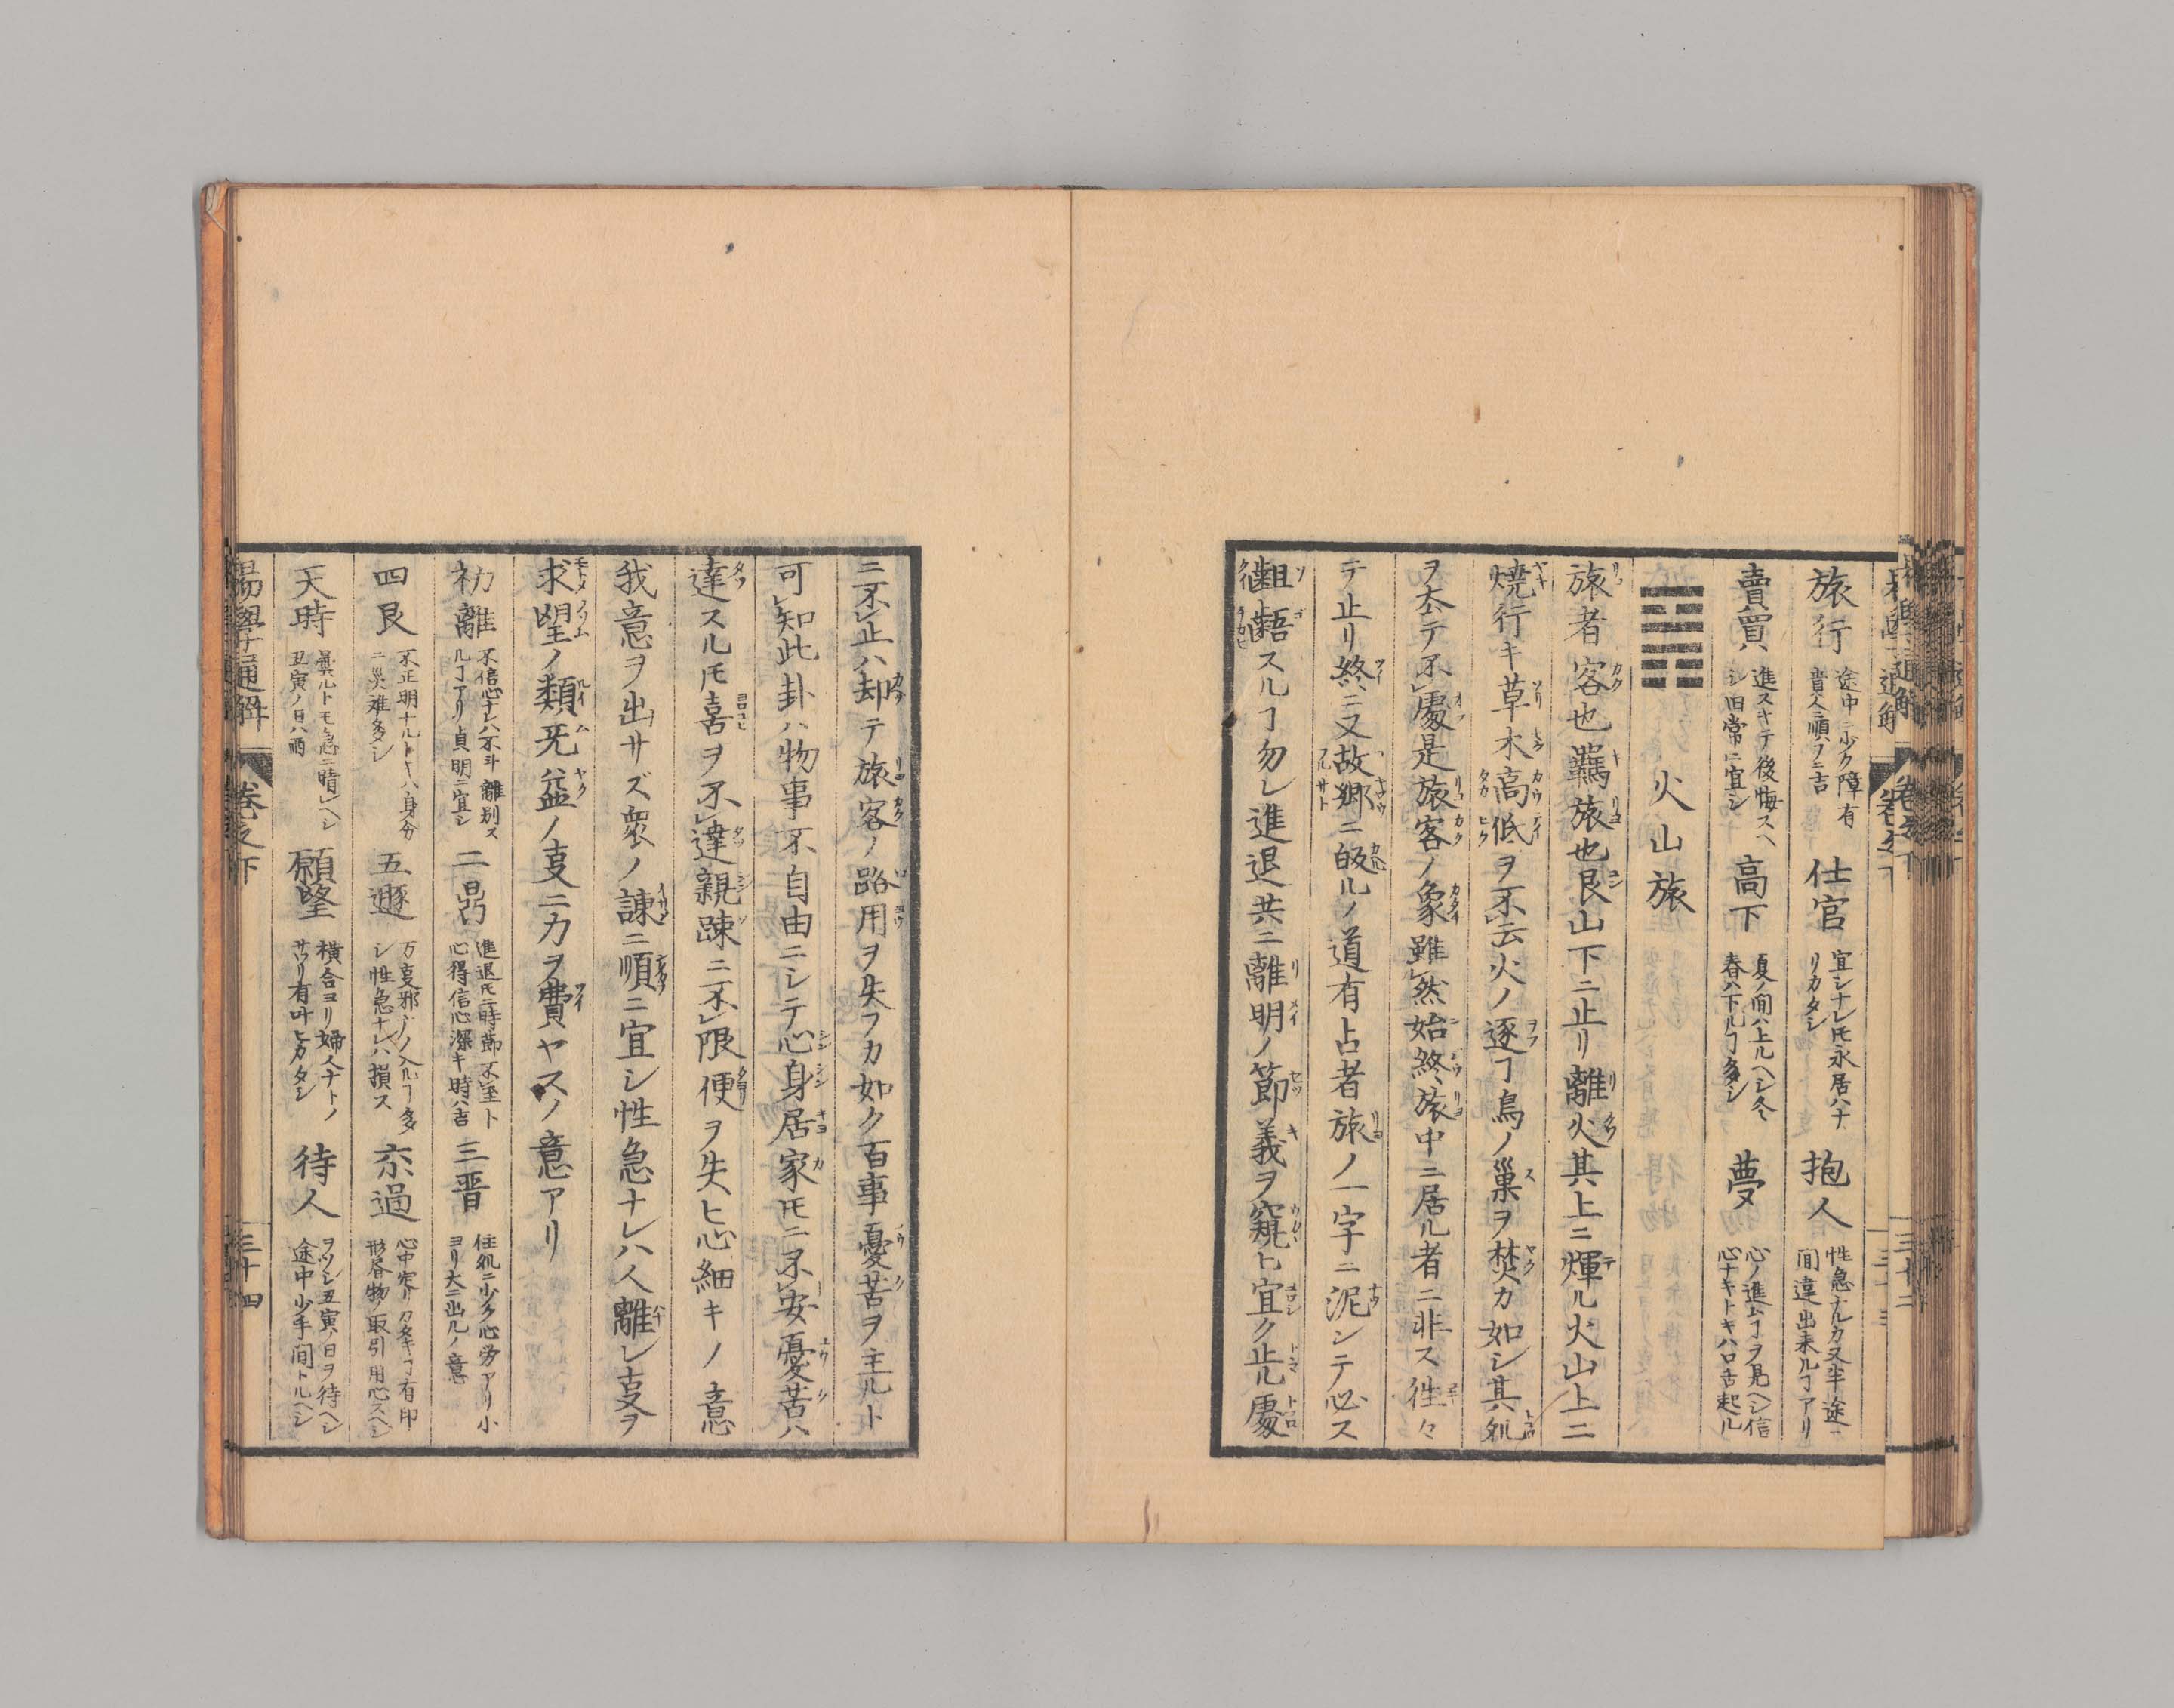 旅行 途中ニ少ク障有
貴人ニ順フニ吉
仕官 宜シナレ𪜈永居ハナ
リカタシ
抱人 性急ナルカ又半途ニ
間違出来ルヿアリ
賣買 進スキテ後悔スヘ
シ旧常ニ宜シ
高下 夏ノ間ハ上ルヘシ冬
春ハ下ルヿ多シ
夢 心ノ進ムヿヲ見ヘシ信
心ナキトキハ口舌起ル
火山旅
旅者客也羈旅也艮山下ニ止リ離火其上ニ煇ル火山上ニ
燒行キ草木高低ヲ不レ云火ノ逐フヿ鳥ノ巢ヲ焚カ如シ其処
ヲ去テ不レ處是旅客ノ象雖レ然始終旅中ニ居ル者ニ非ス徃々
テ止リ終ニ又故郷ニ皈ルノ道有占者旅ノ一字ニ泥ンテ必ス
齟齬スルヿ勿レ進退共ニ離明ノ節義ヲ窺ヒ宜ク止ル處
ニ不レ止ハ却テ旅客ノ路用ヲ失フカ如ク百事憂苦ヲ主ルト
可レ知此卦ハ物事不自由ニシテ心身居家𪜈ニ不レ安憂苦ハ
達スル𪜈喜ヲ不レ達親疎ニ不レ限便ヲ失ヒ心細キノ意
我意ヲ出サズ衆ノ諫ニ順ニ宜シ性急ナレハ人離レ叓ヲ
求望ノ類无益ノ叓ニ力ヲ費ヤスノ意アリ
初離 不信心ナレハ不斗離別ス
ルヿアリ貞明ニ宜シ
二鼎 進退𪜈ニ時節不至ト
心得信心深キ時ハ吉
三晋 住処ニ少ク心労アリ小
ヨリ大ニ出ルノ意
四艮 不正明ナルトキハ身分
ニ災难多シ
五遯 万叓邪广ノ入ルヿ多
シ性急ナレハ損ス
六過 心中定リカタキヿ有印
形唇物ノ取引用心スヘシ
天時 曇ルトモ急ニ晴ルヘシ
丑寅ノ日ハ雨
願望 横合ヨリ婦人ナトノ
サワリ有叶ヒカタシ
待人 ヲソシ丑寅ノ日ヲ待ヘシ
途中少手間トルヘシ
易學通解 卷之下 三十四